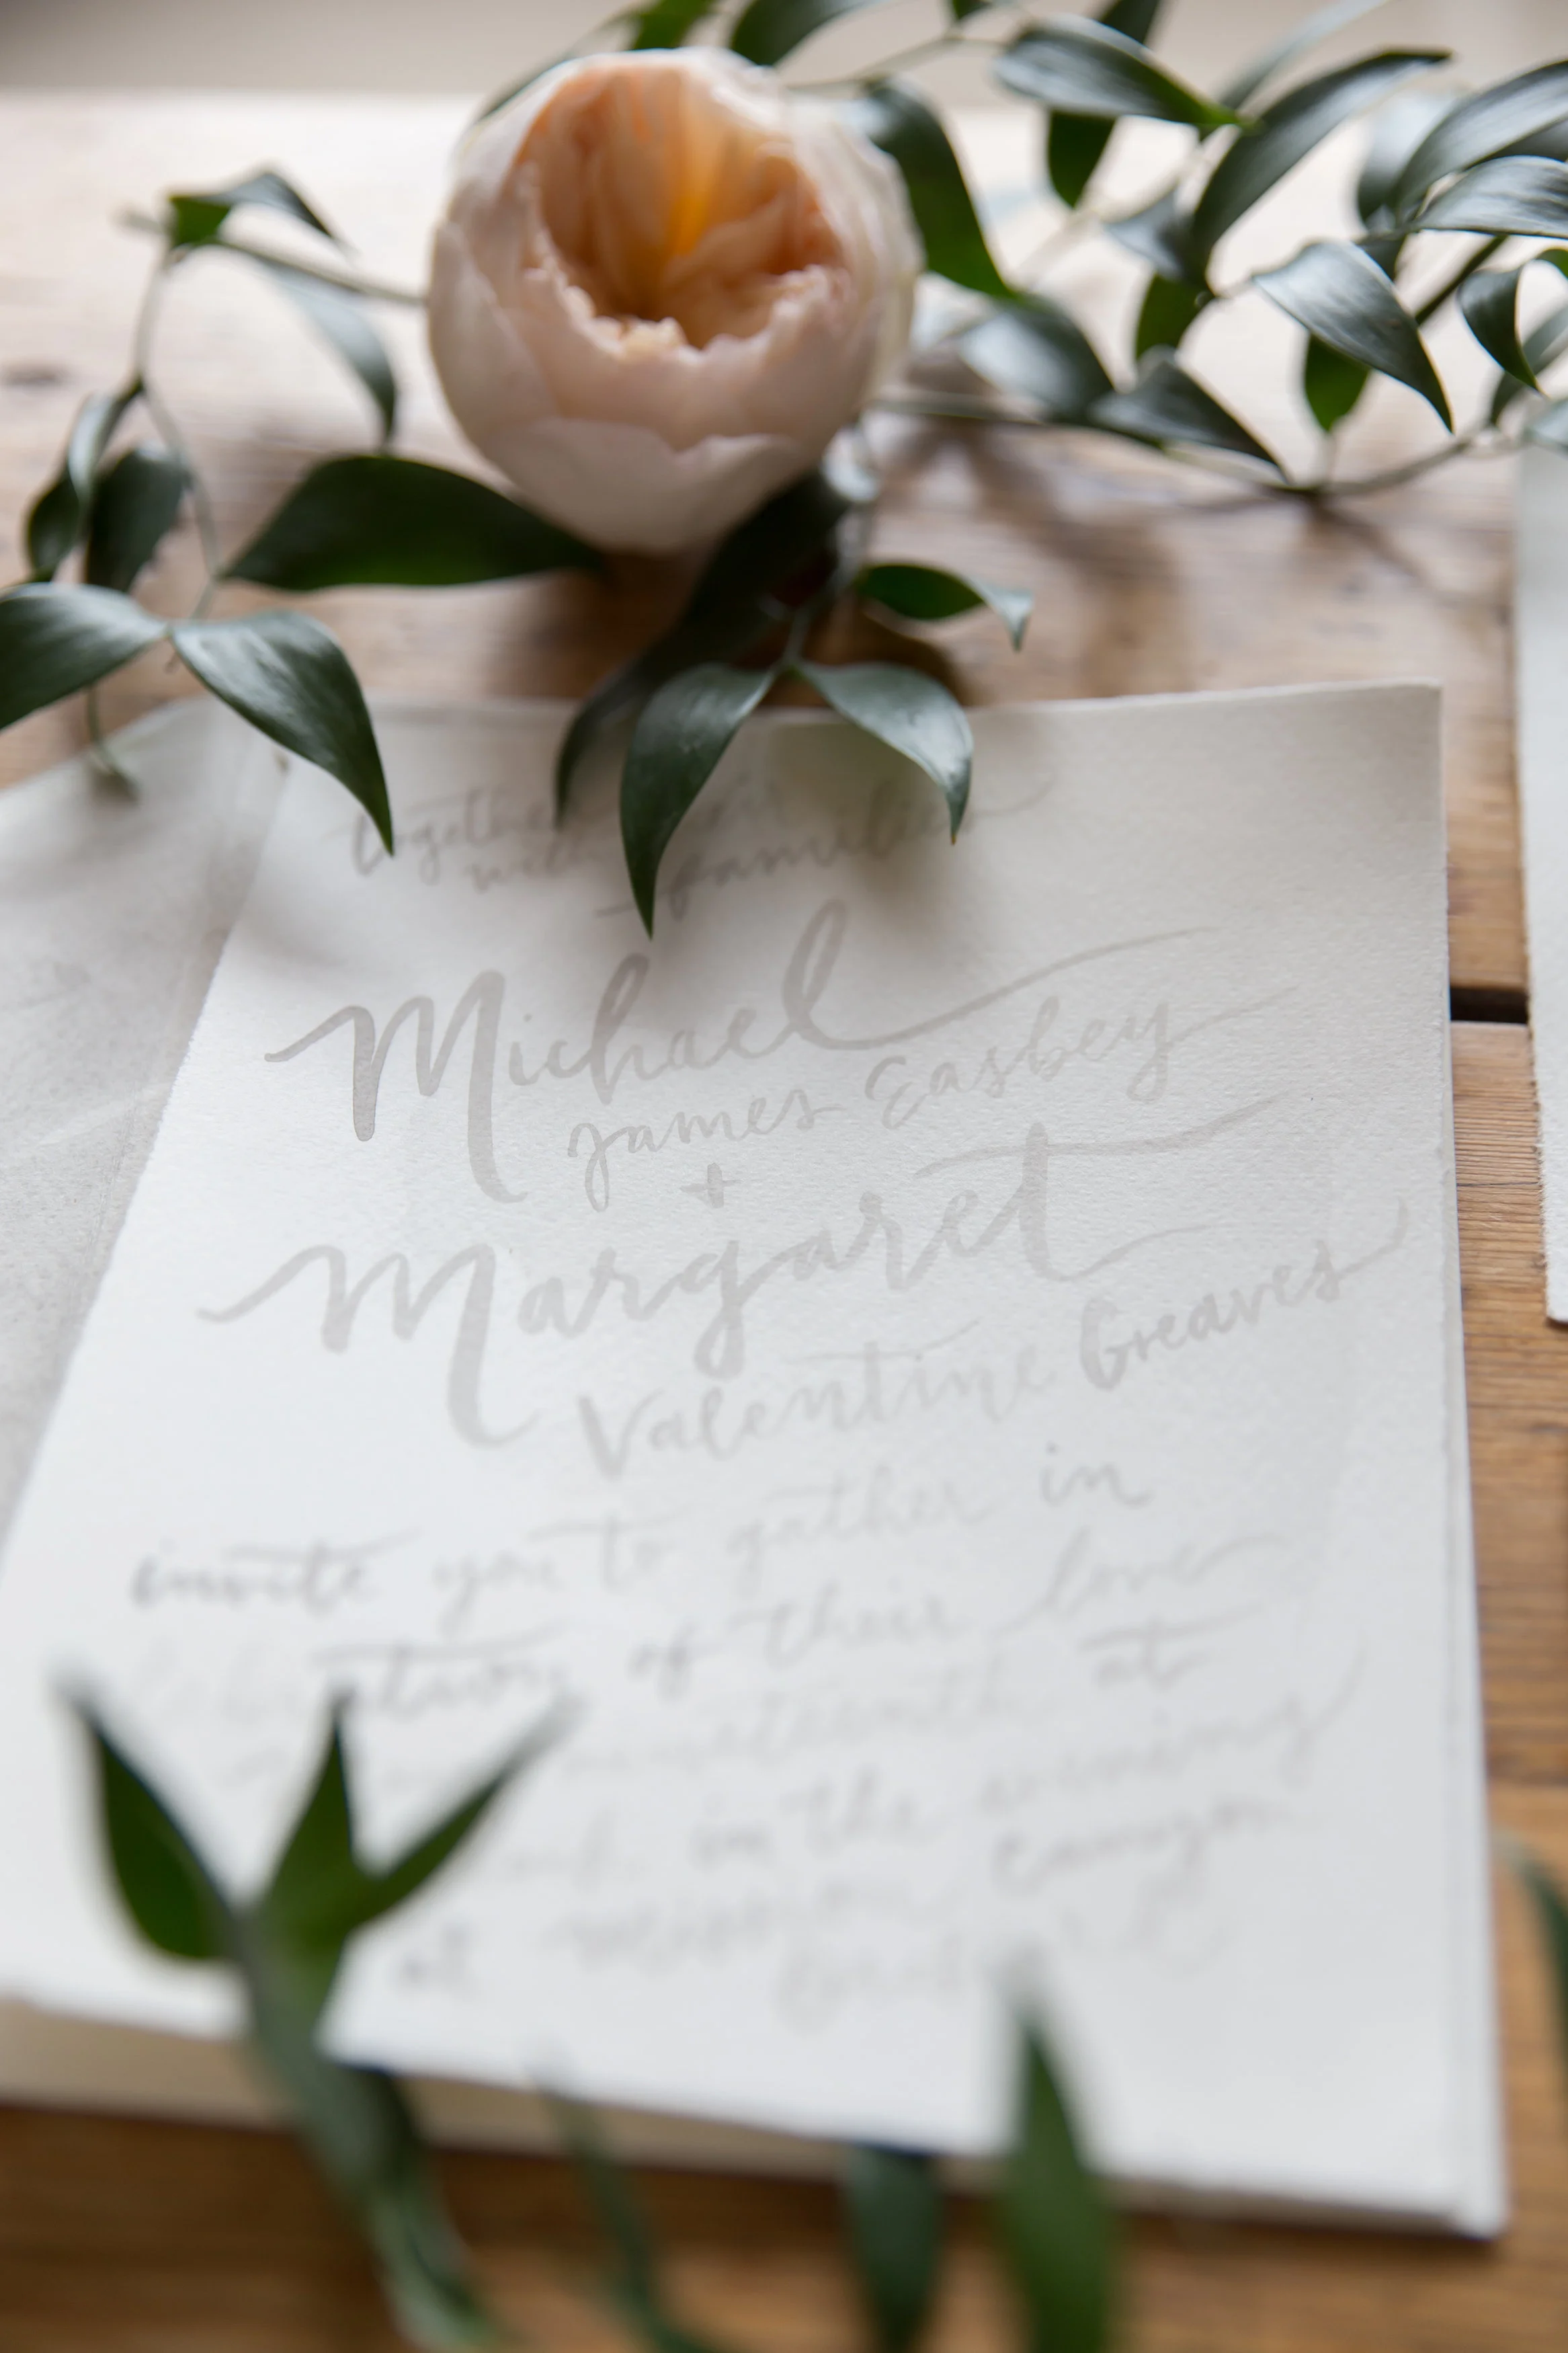 together with
families
Michael
James Easbey
+
Margaret
Valentine Greaves
invite you to gather in
of their love
at
in the evening
at Canyon